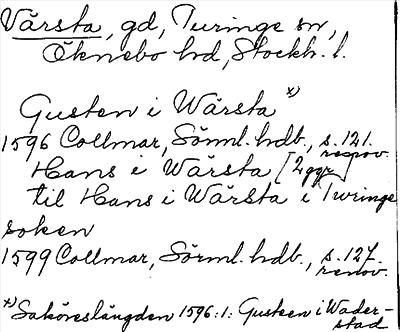 Vårsta, gd, Turinge sn,
Öknebo hd, Stockh. l.
Gusten i Wårsta x)
1596 Collmar, Sörml. hdb., s. 121.
renov.
Hans i Wårsta [2 ggr]
til Hans i Wårsta i Turinge
soken
1599 Collmar, Sörml. hdb., s. 127.
renov.
x) Saköreslängden 1596:1: Gusten i Wader-
stad